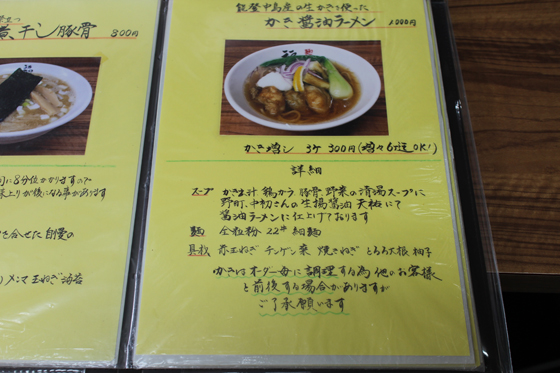 煮干し豚骨 800円
に8分位かかりますので
味上りが後になる事があります
を合せた 自慢の
メンマ 玉ねぎ 海苔
能登中島産の生かきを使った
かき醤油ラーメン 1000円
かき増し 3ケ 300円(増々6迄OK!)
詳細
スープ かきま汁 鶏がら 豚骨 野菜の清湯スープに
野町、中初さんの生揚醤油 天極にて
醤油ラーメンに仕上げております
麺 全粒粉 22# 細麺
具材 赤玉ねぎ チンゲン菜 焼きねぎ とろろ大根 柚子
かきはオーダー毎に調理する為他のお客様
と前後する場合がありますが
ご了承願います